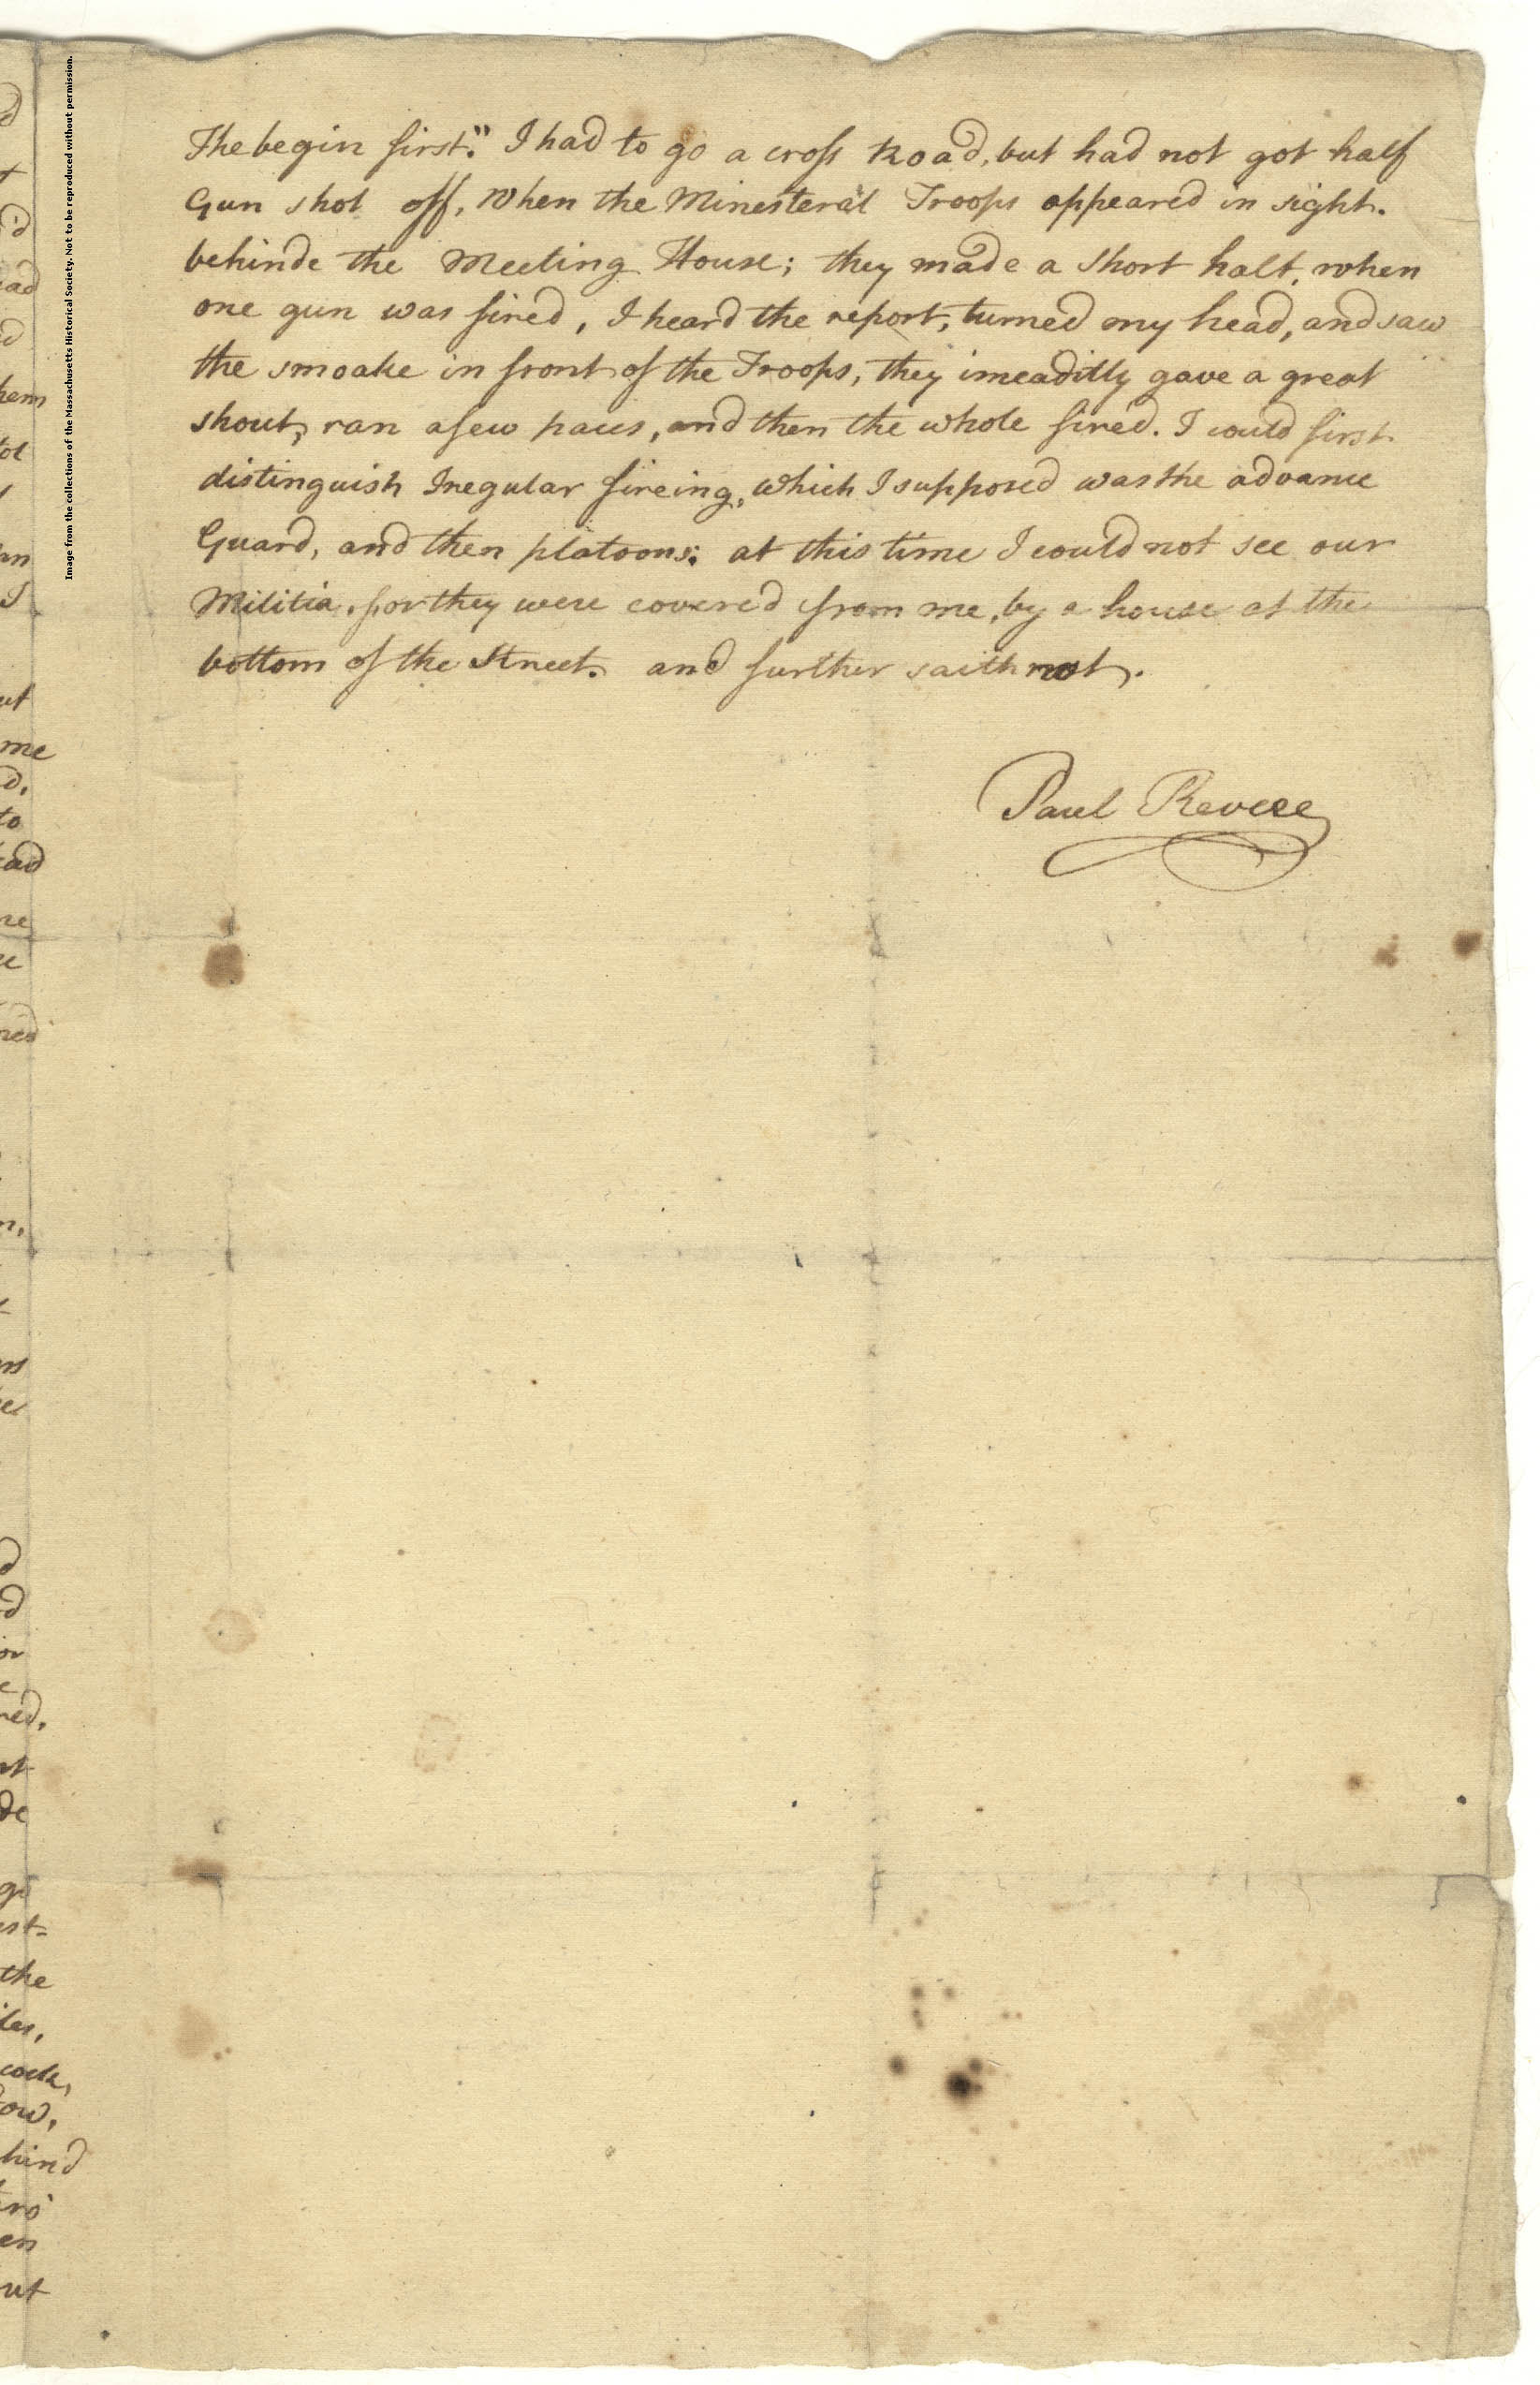 The begin first." I had to go a cross Road, but had not got half
Gun shot off, when the Minesteral Troops appeared in sight.
behinde the Meeting House; they made a short halt, when
one gun was fired, I heard the report, turned my head, and saw
the smoake in front of the Troops, they imeaditly gave a great
shout, ran a few paces, and then the whole fired. I could first
distinguish Iregular fireing, which I supposed was the advance
Guard, and then platoons; at this time I could not see our
Militia, for they were covered from me, by a house at the
bottom of the Street. and further saith not.
Paul Revere
Image from the collections of the Massachusetts Historical Society. Not to be reproduced without permission.
hem
me
to
ad
the
cock,
hind
en
ut